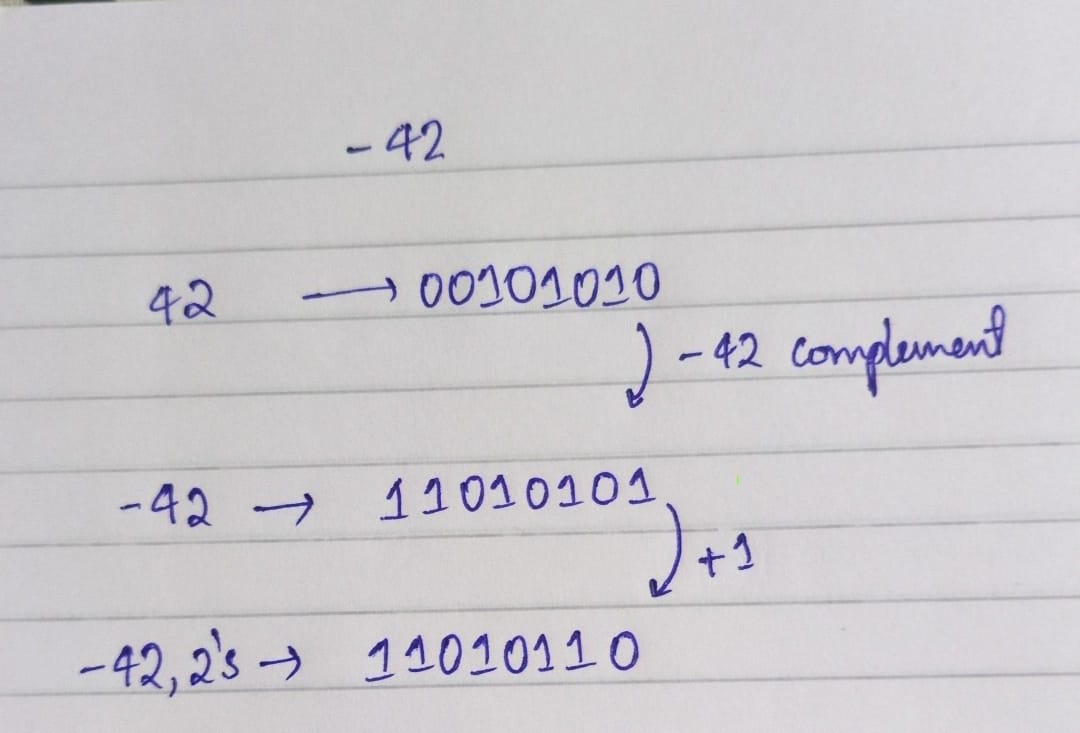 -42
42 → 00101010
-42 complement
-42 → 11010101
+1
-42, 2's → 11010110